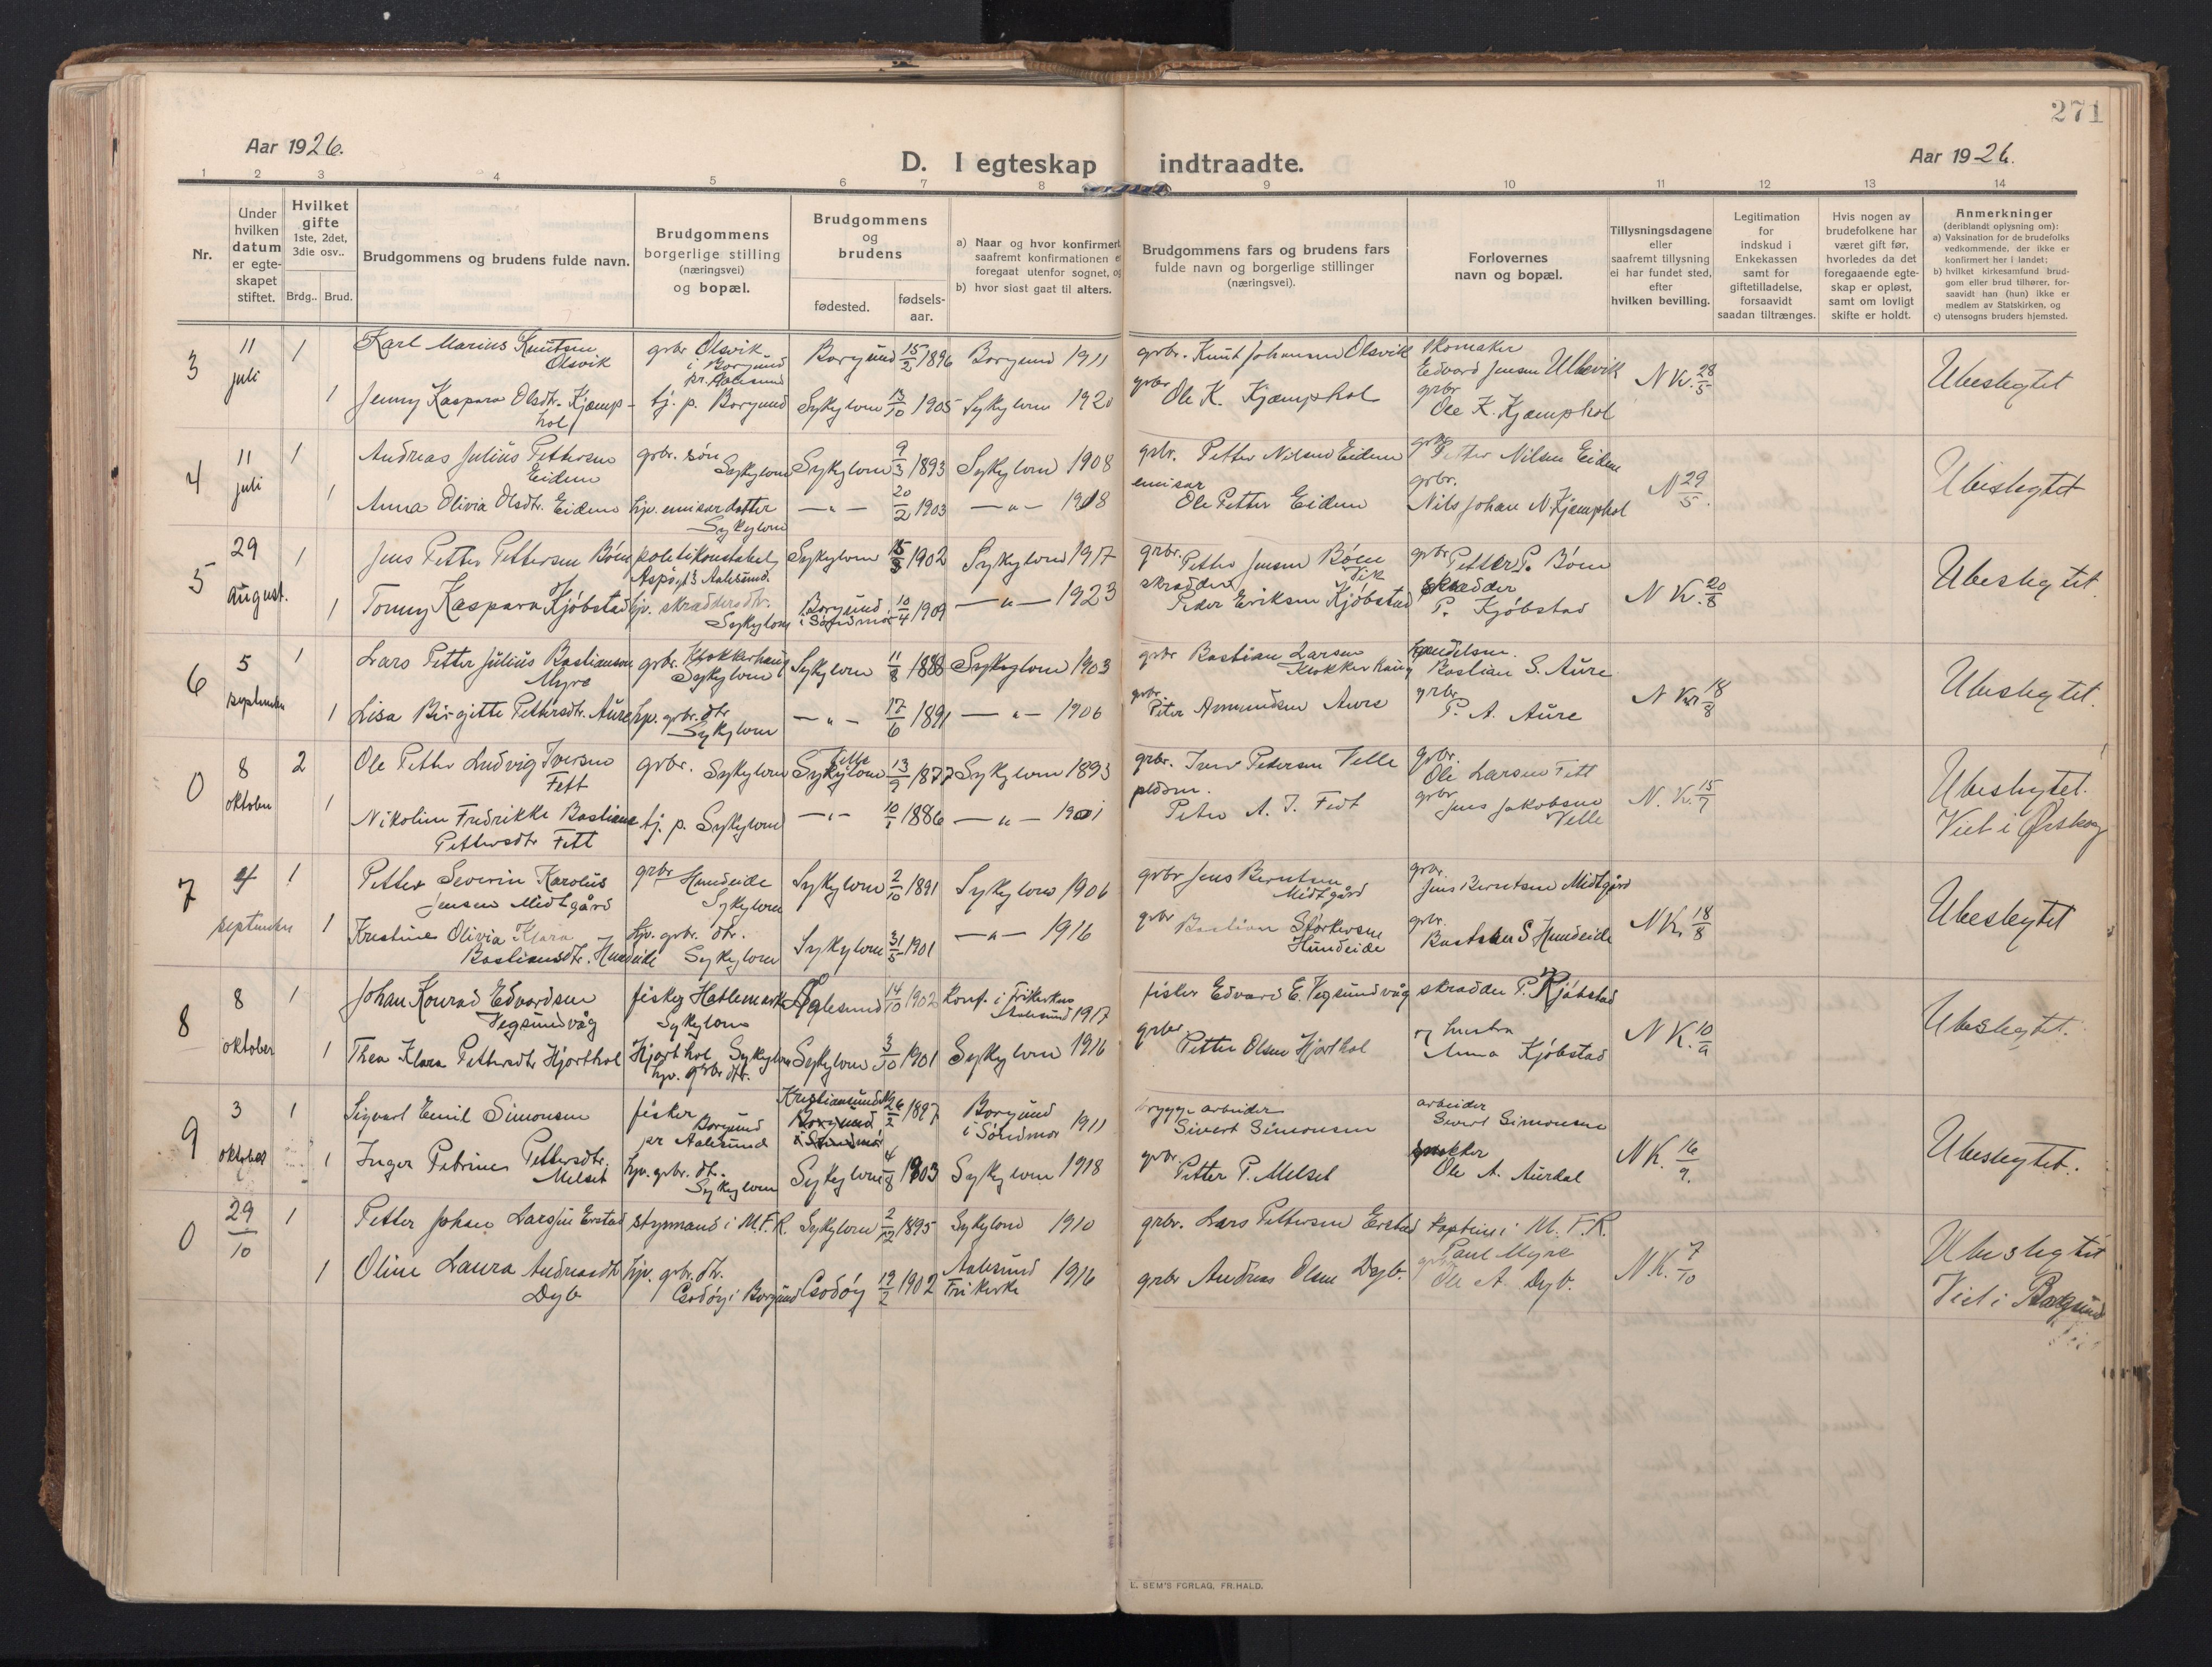 271
Aar 1926.
D. I egteskap indtraadte.
Aar 1926.
1 2 3 4 5 6 7 8 9 10 11 12 13 14
Nr.
Under hvilken datum er egte-skapet stiftet.
Hvilket gifte
1ste, 2det, 3die osv..
Brdg.. Brud.
Brudgommens og brudens fulde navn.
Brudgommens borgerlige stilling (næringsvei) og bopæl.
Brudgommens og brudens
fødested.
fødsels-aar.
a) Naar og hvor konfirmert,
saafremt konfirmationen er
foregaat utenfor sognet, og
b) hvor sidst gaat til alters.
Brudgommens fars og brudens fars
fulde navn og borgerlige stillinger
(næringsvei).
Forlovernes
navn og bopæl.
Tillysningsdagene
eller
saafremt tillysning
ei har fundet sted,
efter
hvilken bevilling.
Legitimation
for
indskud i
Enkekassen
samt for
giftetilladelse,
forsaavidt
saadan tiltrænges.
Hvis nogen av
brudefolkene har
været gift før,
hvorledes da det
foregaaende egte-
skap er opløst,
samt om lovligt
skifte er holdt.
Anmerkninger
(deriblandt oplysning om):
a) Vaksination for de brudefolks
vedkommende, der ikke er
konfirmert her i landet;
b) hvilket kirkesamfund brud-
gom eller brud tilhører, for-
saavidt han (hun) ikke er
medlem av Statskirken, og
c) utensogns bruders hjemsted.
3 11 juli 1 Karl Marius Knutsen Olsvik grbr Olsvik i Borgund pr. Aalesund Borgund 15/2 1896 Borgund 1911 grbr. Knut Johansen Olsvik skomaker Edvard Jensen Ulsevik N K. 28/5 Ubeslegtet
1 Jenny Kaspara Olsdtr. Kjæmp-hol tj. p. Borgund Sykylven 13/10 1905 Sykylven 1920 grbr Ole K. Kjæmphol grbr Ole K. Kjæmphol
4 11 juli 1 Andreas Julius Pettersen Eidem grbr. søn Sykylven Sykylven 9/3 1893 Sykylven 1908 grbr. Petter Nilsen Eidem grbr Petter Nilsen Eidem N 29/5. Ubeslegtet
1 Anna Olivia Olsdtr. Eidem hjv. emisærdatter Sykylven — " — 20/2 1903 — " — 1918 emisær Ole Petter Eidem grbr. Nils Johan N. Kjæmphol
5 29 august. 1 Jens Petter Pettersen Bóen politikonstabel, Aspóy 13 Aalesund. Sykylven 15/3 1902 Sykylven 1917 grbr. Petter Jensen Bóen Vik grbr Petter P. Bóen N K. 20/8 Ubeslegtet.
1 Tonny Kaspara Kjóbstad hjv. skræddersdtr. Sykylven Borgund i Sóndmór 10/4 1909 — " — 1923 skrædder Peder Eriksen Kjóbstad skrædder P. Kjóbstad
6 5 september 1 Lars Petter Julius Bastiansen Myre grbr. Klokkerhaug Sykylven Sykylven 11/8 1888 Sykylven 1903 grbr Bastian Larsen Klokkerhaug handelsm. Bastian S. Aure N K. 18/8 Ubeslegtet.
1 Lisa Birgitte Pettersdtr. Aure hjv. grbr. dtr Sykylven — " — 17/6 1891 — " — 1906 grbr. Peter Amundsen Aure grbr P. A. Aure
0 8 oktober 2 Ole Petter Ludvig Iversen Fett grbr. Sykylven Velle Sykylven 13/9 1877 Sykylven 1893 grbr. Iver Pedersen Velle grbr. Ole Larsen Fett N. K. 15/7 Ubeslegtet.
1 Nikoline Fredrikke Bastiane Pettersdtr Fett tj. p. Sykylven — " — 10/1 1886 — " — 1901 pldsm. Peter A. I. Fedt grbr Jens Jakobsen Velle Viet i Ørskog
7 4 september 1 Petter Severin Karolius Jensen Midtgård grbr Hundeide Sykylven Sykylven 2/10 1891 Sykylven 1906 grbr Jens Berntsen Midtgård grbr. Jens Berntsen Midtgård N K. 18/8 Ubeslegtet
1 Kristine Olivia Klara Bastiansdtr. Hundeide hjv. grbr. dtr. Sykylven Sykylven 31/5 1901 — " — 1916 grbr Bastian Størkersen Hundeide grbr. Bastian S Hundeide
8 8 oktober 1 Johan Konrad Edvardsen Vegsundvåg fisker Hatlemark Sykylven Aalesund 14/10 1902 Konf. i Frikirken Aalesund 1917 fisker Edvard E. Vegsundvåg skrædder P. Kjóbstad N K. 10/9 Ubeslegtet.
1 Thea Klara Pettersdtr Hjorthol Hjorthol Sykylven hjv. grbr dtr. Sykylven 3/10 1901 Sykylven 1916 grbr Petter Olsen Hjorthol og hustru Anna Kjóbstad
9 3 oktober 1 Sigvart Emil Simonsen fisker Borgund pr Aalesund Kristiansund N Borgund i Sóndmór 26/2 1897 Borgund i Sóndmór 1911 bryggearbeider Sivert Simonsen arbeider Sivert Simonsen N K. 16/9. Ubeslegtet.
1 Inger Petrine Pettersdtr. Melset hjv. grbr. dtr. Sykylven Sykylven 4/8 1903 Sykylven 1918 grbr. Petter P. Melset snekker Ole A. Aurdal
0 29/10 1 Petter Johan Larsen Erstad styrmand i M.F.R. Sykylven 2/12 1895 Sykylven 1910 grbr. Lars Pettersen Erstad kaptein i M. F. R. Paul Myre N.K. 7/10 Ubeslegtet
1 Oline Laura Andreasdtr Dyb hjv. grbr. dtr. Godóy i Borgund Godóy 19/2 1902 Aalesund Frikirke 1916 grbr Andreas Olsen Dyb. grbr Ole A. Dyb. Viet i Borgund
E. SEM'S FORLAG, FR.HALD.